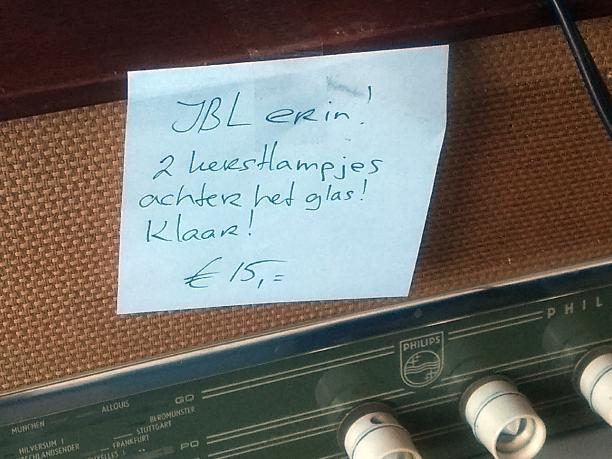 JBL erin!
2 kerstlampjes
achter het glas!
Klaar!
€ 15,=
PHIL
PHILIPS
MÜNCHEN
ALLOUIS
GO
BEROMÜNSTER
STUTTGART
HILVERSUM I
FRANKFURT